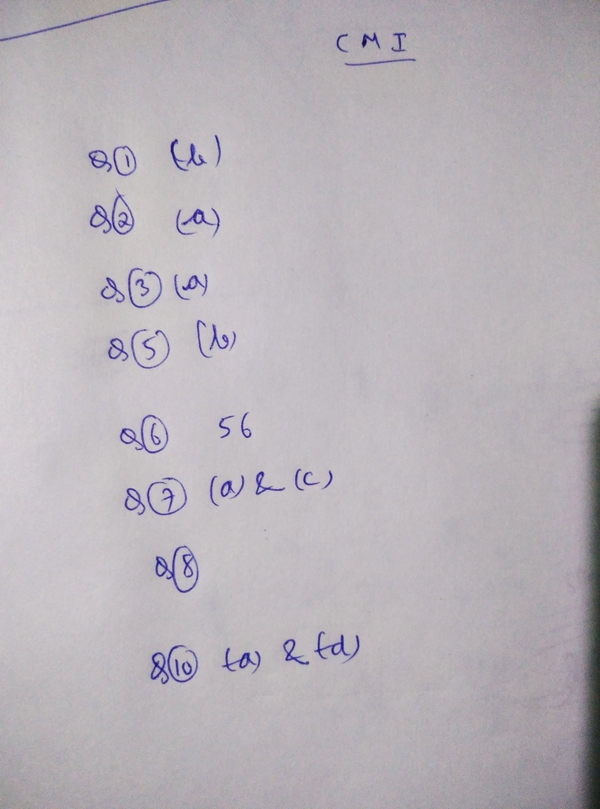 CMI
Q① (b)
Q② (a)
Q③ (a)
Q⑤ (b)
Q⑥ 56
Q⑦ (a) & (c)
Q⑧
Q⑩ (a) & (d)